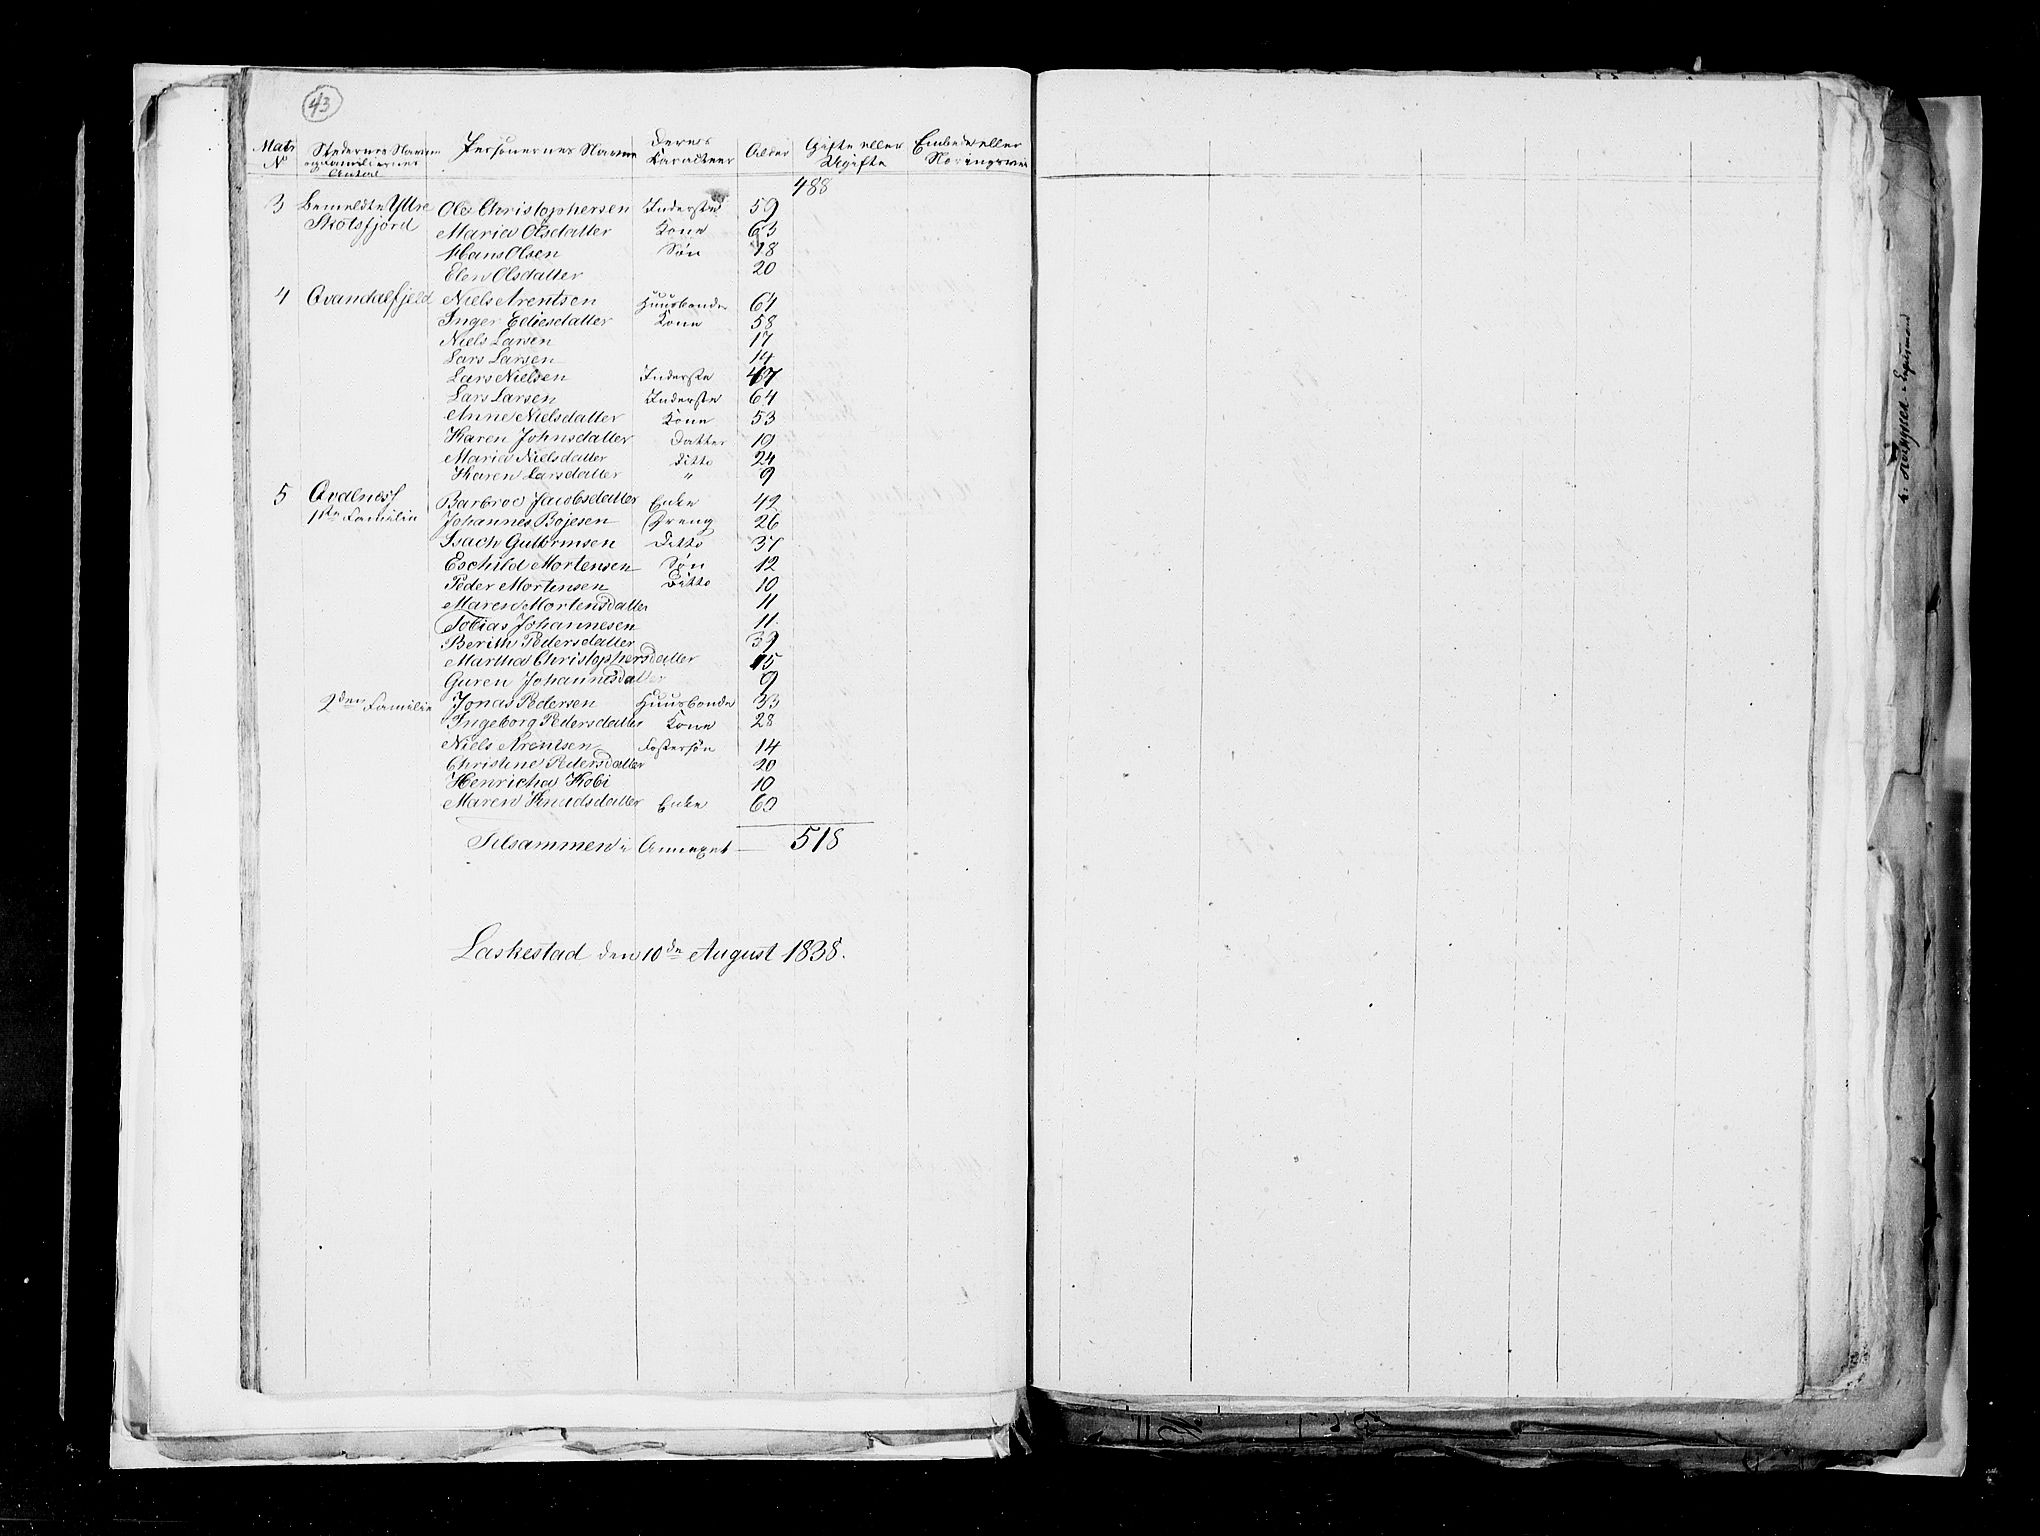 43
Matr N° Stedernes Navne og Familiernes Antal Personernes Navne Deres Caracteer Alder Gifte eller Ugifte Embede eller Næringsvei
488
3 Bemeldte Yttre Ole Christophersen Inderste 59
Skotsfjord Maria Olsdatter Kone 63
Hans Olsen Søn 18
Elen Olsdatter 20
4 Qvandalfjeld Niels Arentsen Huusbonde 64
Inger Eliesdatter Kone 58
Niels Larsen 17
Lars Larsen 14
Lars Nielsen Inderste 47
Lars Larsen Inderste 64
Anne Nielsdatter Kone 53
Karen Johnsdatter Datter 19
Maria Nielsdatter Ditto 24
Karen Larsdatter " 9
5 Qvalnes Barbroe Jacobsdatter Enke 42
1ste Familie Johannes Bojesen Dreng 26
Isach Guttormsen Ditto 37
Eschild Mortensen Søn 12
Peder Mortensen Ditto 10
Maren Mortensdatter 11
Tobias Johannesen 11
Berith Pedersdatter 39
Martha Christophersdatter 15
Guren Johannesdatter 9
2den Familie Jonas Pedersen Huusbonde 33
Ingeborg Pedersdatter Kone 28
Niels Arentsen Fostersøn 14
Christine Pedersdatter 20
Henricha Kobi 10
Maren Knudsdatter Enke 60
Tilsammen i Annexet — 518
Laskestad den 10de August 1838.